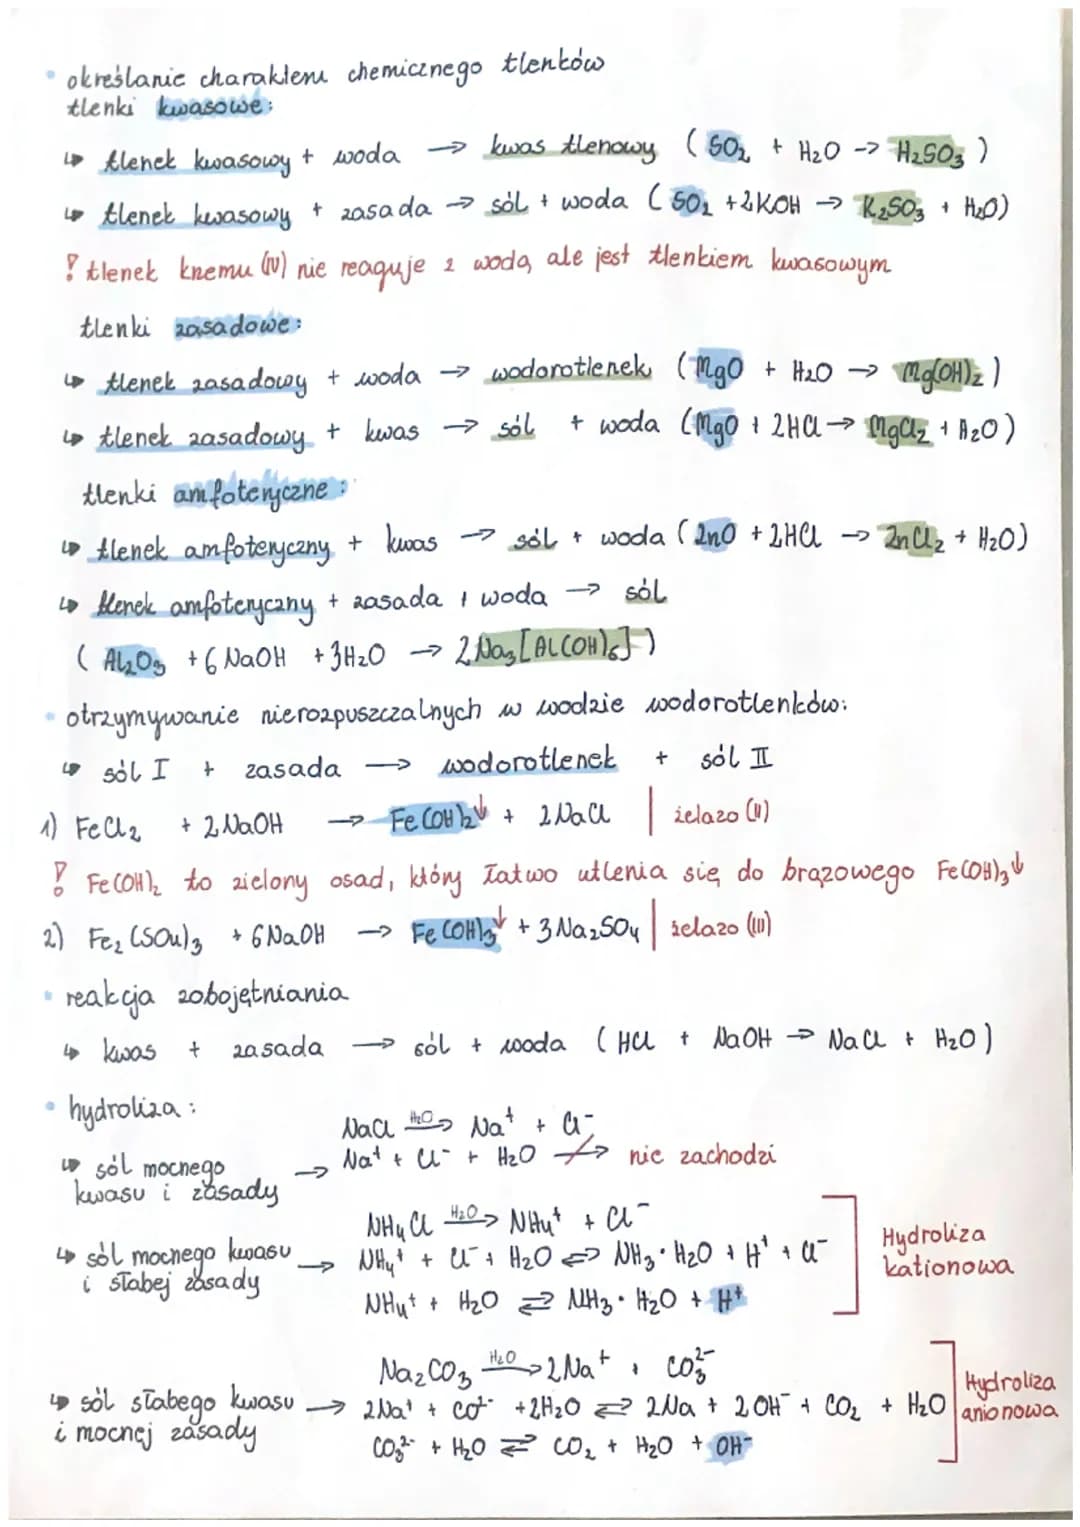 • określanie charakteru chemicznego tlenków
tlenki kwasowe:
↳ tlenek kwasowy + woda → kwas tlenowy ( SO₂ + H₂O -> H₂SO₃ )
↳ tlenek kwasowy + zasada → sól + woda ( SO₂ + 2KOH → K₂SO₃ + H₂O)
! tlenek krzemu (IV) nie reaguje z wodą ale jest tlenkiem kwasowym
tlenki zasadowe:
↳ tlenek zasadowy + woda → wodorotlenek (MgO + H₂O → Mg(OH)₂ )
↳ tlenek zasadowy + kwas → sól + woda (MgO + 2HCl → MgCl₂ + H₂O )
tlenki amfoteryczne :
↳ tlenek amfoteryczny + kwas → sól + woda ( ZnO + 2HCl → ZnCl₂ + H₂O)
↳ tlenek amfoteryczny + zasada + woda → sól
( Al₂O₃ + 6 NaOH + 3H₂O → 2 Na₃[Al(OH)₆] )
• otrzymywanie nierozpuszczalnych w wodzie wodorotlenków:
↳ sól I + zasada → wodorotlenek + sól II
1) FeCl₂ + 2 NaOH → Fe(OH)₂↓ + 2 NaCl | żelazo (II)
! Fe(OH)₂ to zielony osad, który łatwo utlenia się do brązowego Fe(OH)₃↓
2) Fe₂(SO₄)₃ + 6 NaOH → Fe(OH)₃↓ + 3 Na₂SO₄ | żelazo (III)
• reakcja zobojętniania
↳ kwas + zasada → sól + woda ( HCl + NaOH → NaCl + H₂O )
• hydroliza :
NaCl –H₂O→ Na⁺ + Cl⁻
↳ sól mocnego kwasu i zasady → Na⁺ + Cl⁻ + H₂O ↛ nie zachodzi
NH₄Cl –H₂O→ NH₄⁺ + Cl⁻
↳ sól mocnego kwasu i słabej zasady → NH₄⁺ + Cl⁻ + H₂O ⇌ NH₃ · H₂O + H⁺ + Cl⁻
NH₄⁺ + H₂O ⇌ NH₃ · H₂O + H⁺
Hydroliza
kationowa
Na₂CO₃ –H₂O→ 2 Na⁺ + CO₃²⁻
↳ sól słabego kwasu i mocnej zasady → 2Na⁺ + CO²⁻ + 2H₂O ⇌ 2Na + 2OH⁻ + CO₂ + H₂O
CO₃²⁻ + H₂O ⇌ CO₂ + H₂O + OH⁻
Hydroliza
anionowa